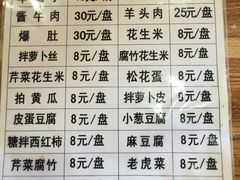 酱牛肉 30元/盘 羊头肉 25元/盘
爆肚 30元/盘 花生米 8元/盘
拌萝卜丝 8元/盘 腐竹花生米 8元/盘
芹菜花生米 8元/盘 松花蛋 8元/盘
拍黄瓜 8元/盘 拌萝卜皮 8元/盘
皮蛋豆腐 8元/盘 小葱豆腐 8元/盘
糖拌西红柿 8元/盘 麻豆腐 8元/盘
芹菜腐竹 8元/盘 老虎菜 8元/盘